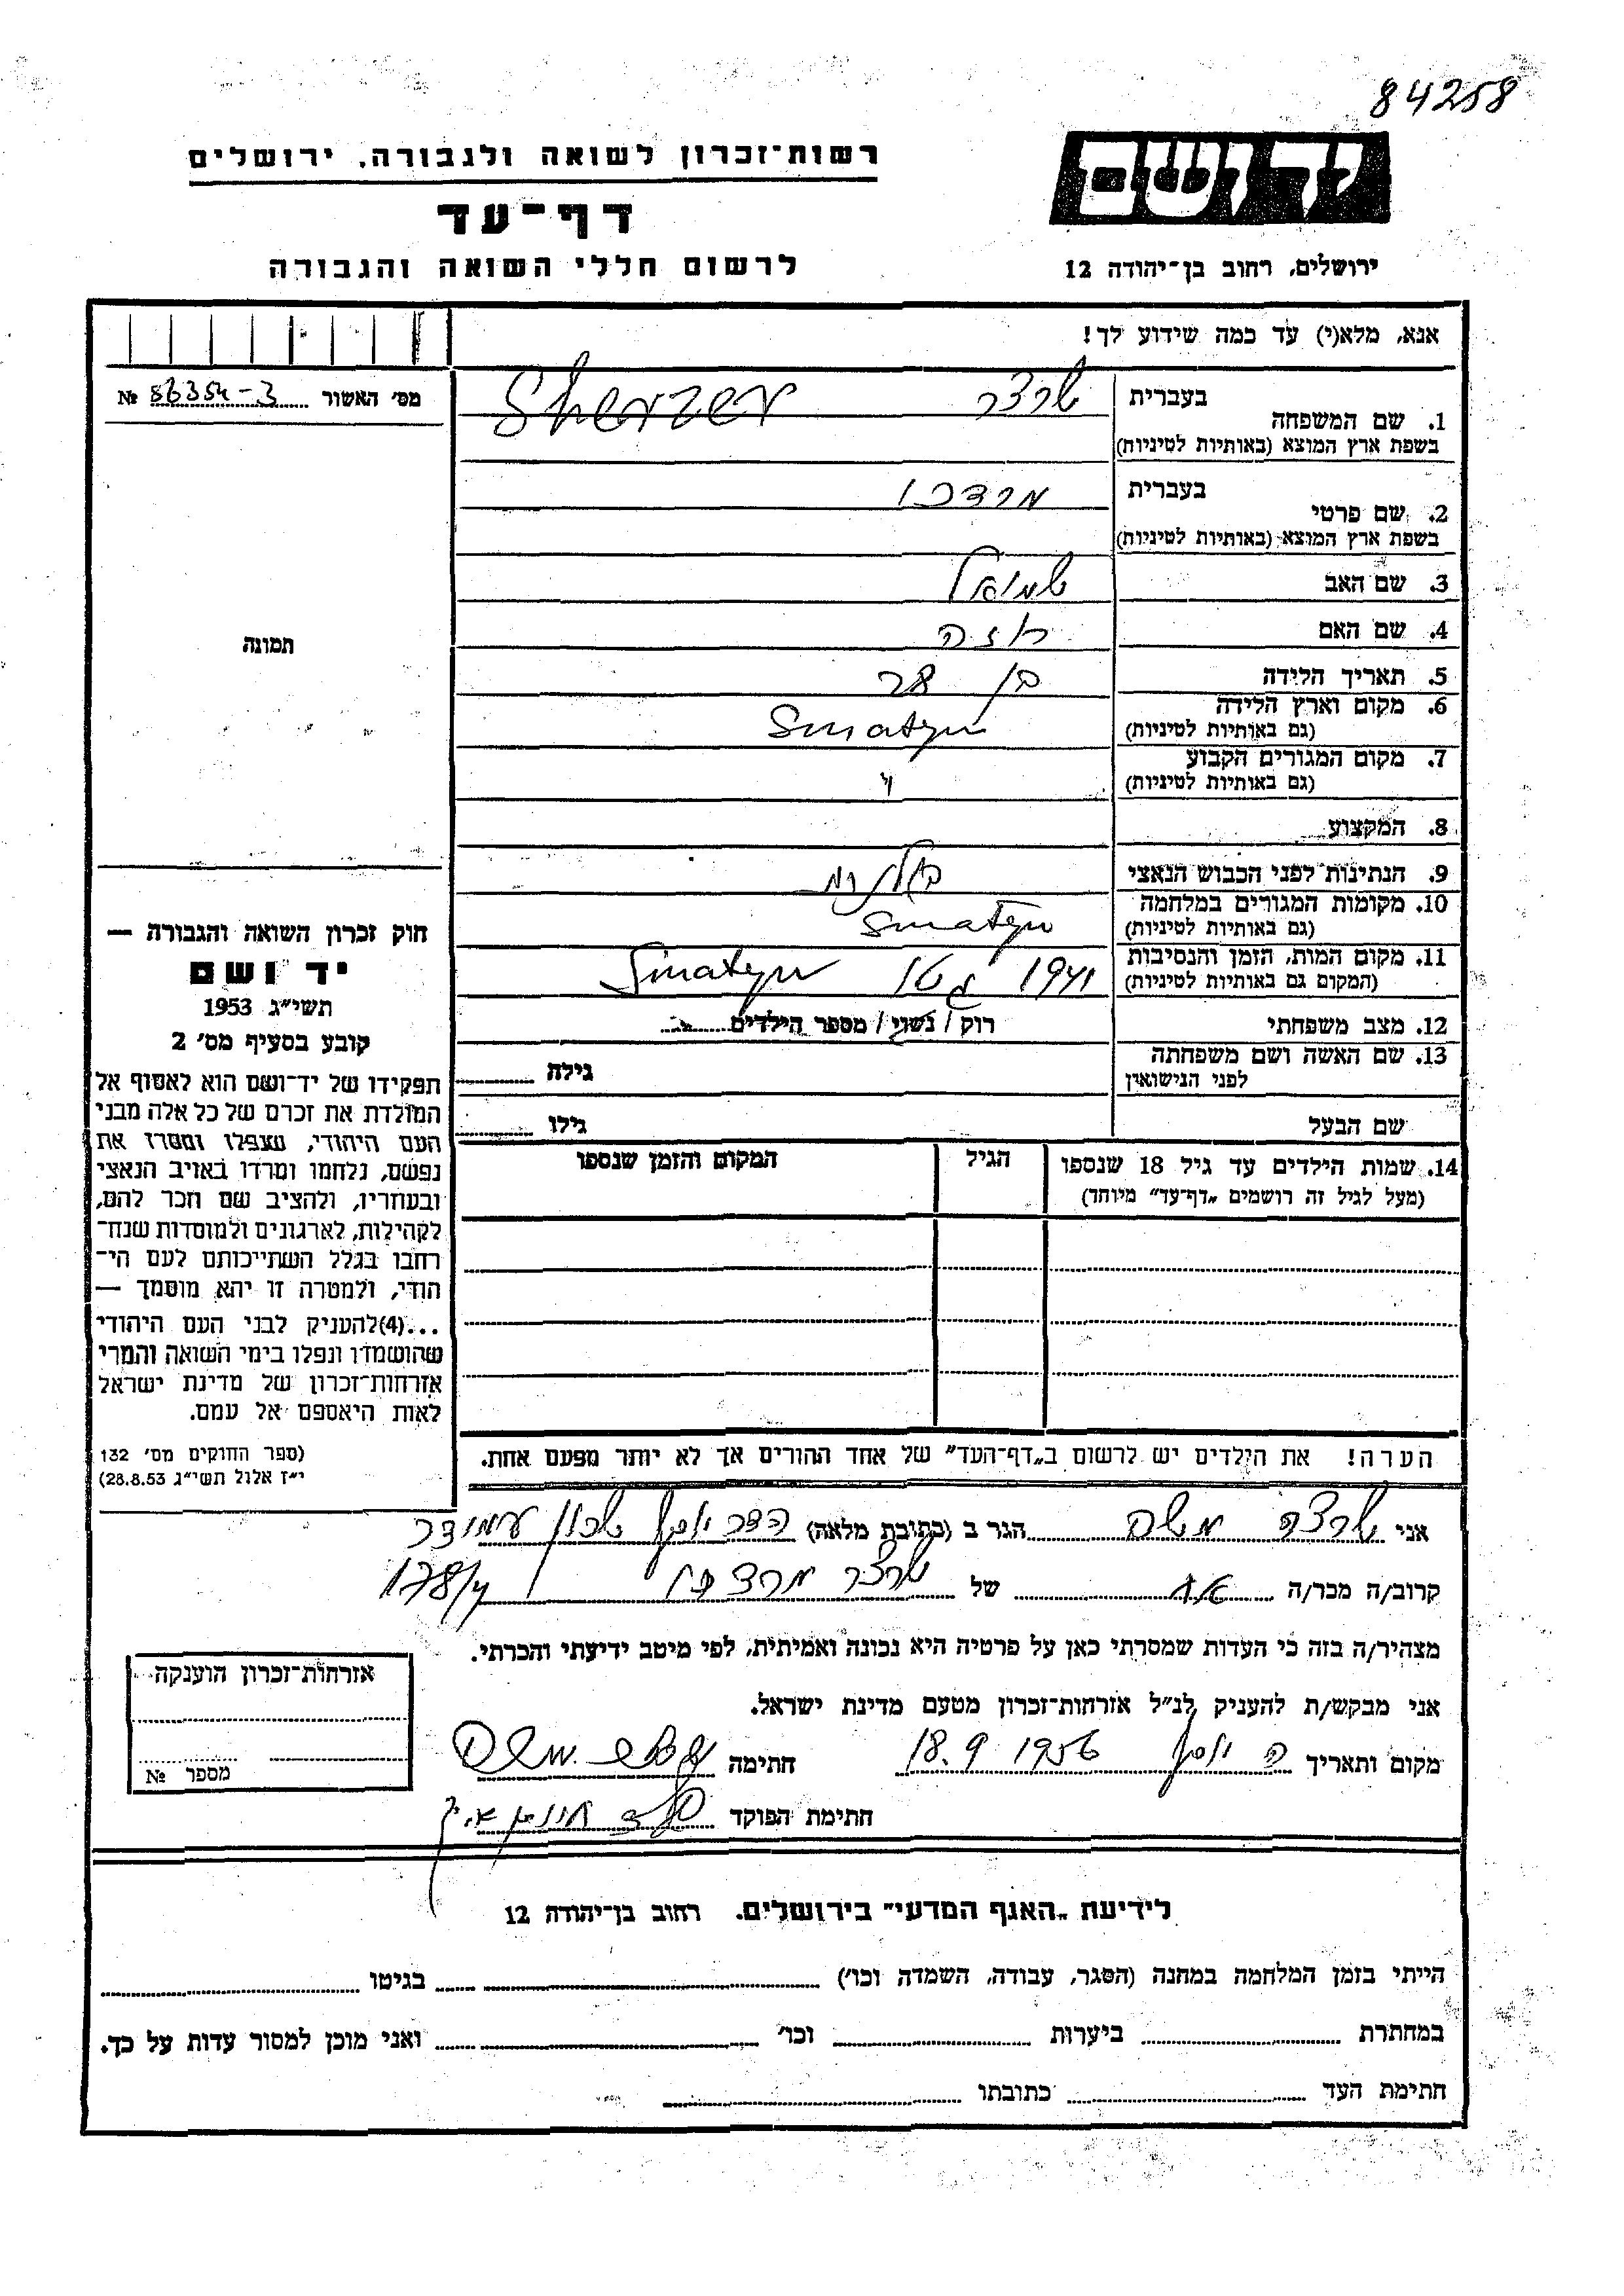 84258
רשות־זכרון לשואה ולגבורה, ירושלים
יד ושם
דף־עד
לרשום חללי השואה והגבורה
ירושלים, רחוב בן־יהודה 12
אנא, מלא(י) עד כמה שידוע לך!
מס׳ האשור 86354-3 №
1. שם המשפחה בעברית שרצר
בשפת ארץ המוצא (באותיות לטיניות) Sherzer
2. שם פרטי בעברית מרדכי
בשפת ארץ המוצא (באותיות לטיניות)
3. שם האב שמואל
4. שם האם רוזה
תמונה
5. תאריך הלידה בן 28
6. מקום וארץ הלידה Sniatyn
(גם באותיות לטיניות)
7. מקום המגורים הקבוע
(גם באותיות לטיניות) "
8. המקצוע
9. הנתינות לפני הכבוש הנאצי
10. מקומות המגורים במלחמה Sniatyn
(גם באותיות לטיניות)
11. מקום המות, הזמן והנסיבות 1941 גטו Sniatyn
(המקום גם באותיות לטיניות)
12. מצב משפחתי רוק / נשוי / מספר הילדים
13. שם האשה ושם משפחתה גילה
לפני הנישואין
שם הבעל גילו
14. שמות הילדים עד גיל 18 שנספו הגיל המקום והזמן שנספו
(מעל לגיל זה רושמים „דף־עד” מיוחד)
חוק זכרון השואה והגבורה —
יד ושם
תשי״ג 1953
קובע בסעיף מס׳ 2
תפקידו של יד־ושם הוא לאסוף אל
המולדת את זכרם של כל אלה מבני
העם היהודי, שנפלו ומסרו את
נפשם, נלחמו ומרדו באויב הנאצי
ובעוזריו, ולהציב שם וזכר להם,
לקהילות, לארגונים ולמוסדות שנח־
רבו בגלל השתייכותם לעם הי־
הודי, ולמטרה זו יהא מוסמך —
...(4)להעניק לבני העם היהודי
שהושמדו ונפלו בימי השואה והמרי
אזרחות־זכרון של מדינת ישראל
לאות היאספם אל עמם.
(ספר החוקים מס׳ 132
י״ז אלול תשי״ג 28.8.53)
הערה! את הילדים יש לרשום ב„דף־העד” של אחד ההורים אך לא יותר מפעם אחת.
אני שרצר משה הגר ב (כתובת מלאה) שכון עמידר
קרוב/ה מכר/ה אח של שרצר מרדכי 178/4
מצהיר/ה בזה כי העדות שמסרתי כאן על פרטיה היא נכונה ואמיתית, לפי מיטב ידיעתי והכרתי.
אני מבקש/ת להעניק לנ״ל אזרחות־זכרון מטעם מדינת ישראל.
מקום ותאריך 18.9 1956 חתימה
חתימת הפוקד
אזרחות־זכרון הוענקה
מספר №
לידיעת „האגף המדעי” בירושלים. רחוב בן־יהודה 12
הייתי בזמן המלחמה במחנה (הסגר, עבודה, השמדה וכו׳) בגיטו
במחתרת ביערות וכו׳ ואני מוכן למסור עדות על כך.
חתימת העד כתובתו